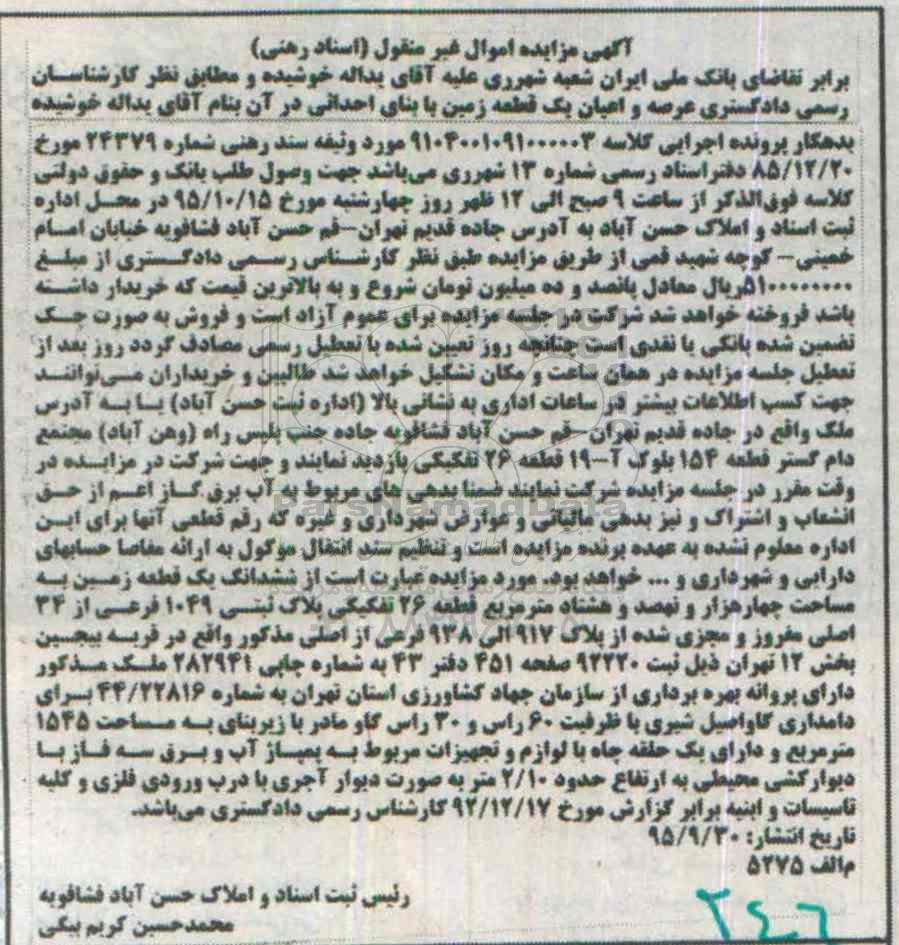 آگهی مزایده اموال غیر منقول (اسناد رهنی)
برابر تقاضای بانک ملی ایران شعبه شهرری علیه آقای یداله خوشیده و مطابق نظر کارشناسان
رسمی دادگستری عرصه و اعیان یک قطعه زمین با بنای احداثی در آن بنام آقای یداله خوشیده
بدهکار پرونده اجرایی کلاسه ۹۱۰۴۰۰۱۰۹۱۰۰۰۰۰۳ مورد وثیقه سند رهنی شماره ۲۴۳۷۹ مورخ
۸۵/۱۲/۲۰ دفتر اسناد رسمی شماره ۱۳ شهرری می‌باشد جهت وصول طلب بانک و حقوق دولتی
کلاسه فوق‌الذکر از ساعت ۹ صبح الی ۱۲ ظهر روز چهارشنبه مورخ ۹۵/۱۰/۱۵ در محل اداره
ثبت اسناد و املاک حسن آباد به آدرس جاده قدیم تهران-قم حسن آباد فشافویه خیابان امام
خمینی- کوچه شهید قمی از طریق مزایده طبق نظر کارشناس رسمی دادگستری از مبلغ
۵۱۰۰۰۰۰۰۰۰ریال معادل پانصد و ده میلیون تومان شروع و به بالاترین قیمت که خریدار داشته
باشد فروخته خواهد شد شرکت در جلسه مزایده برای عموم آزاد است و فروش به صورت چک
تضمین شده بانکی یا نقدی است چنانچه روز تعیین شده با تعطیل رسمی مصادف گردد روز بعد از
تعطیل جلسه مزایده در همان ساعت و مکان تشکیل خواهد شد طالبین و خریداران می‌توانند
جهت کسب اطلاعات بیشتر در ساعات اداری به نشانی بالا (اداره ثبت حسن آباد) یا به آدرس
ملک واقع در جاده قدیم تهران-قم حسن آباد فشافویه جاده جنب پلیس راه (وهن آباد) مجتمع
دام گستر قطعه ۱۵۴ بلوک آ-۱۹ قطعه ۲۶ تفکیکی بازدید نمایند و جهت شرکت در مزایده در
وقت مقرر در جلسه مزایده شرکت نمایند ضمنا بدهی های مربوط به آب برق گاز اعم از حق
انشعاب و اشتراک و نیز بدهی مالیاتی و عوارض شهرداری و غیره که رقم قطعی آنها برای این
اداره معلوم نشده به عهده برنده مزایده است و تنظیم سند انتقال موکول به ارائه مفاصا حسابهای
دارایی و شهرداری و ... خواهد بود. مورد مزایده عبارت است از ششدانگ یک قطعه زمین به
مساحت چهارهزار و نهصد و هشتاد مترمربع قطعه ۲۶ تفکیکی پلاک ثبتی ۱۰۴۹ فرعی از ۳۴
اصلی مفروز و مجزی شده از پلاک ۹۱۷ الی ۹۳۸ فرعی از اصلی مذکور واقع در قریه بیجین
بخش ۱۲ تهران ذیل ثبت ۹۲۲۲۰ صفحه ۴۵۱ دفتر ۴۳ به شماره چاپی ۲۸۲۹۴۱ ملک مذکور
دارای پروانه بهره برداری از سازمان جهاد کشاورزی استان تهران به شماره ۴۴/۲۲۸۱۶ برای
دامداری گاواصیل شیری با ظرفیت ۶۰ راس و ۳۰ راس گاو مادر با زیربنای به مساحت ۱۵۴۵
مترمربع و دارای یک حلقه چاه با لوازم و تجهیزات مربوط به پمپاژ آب و برق سه فاز با
دیوارکشی محیطی به ارتفاع حدود ۲/۱۰ متر به صورت دیوار آجری با درب ورودی فلزی و کلیه
تاسیسات و ابنیه برابر گزارش مورخ ۹۲/۱۲/۱۷ کارشناس رسمی دادگستری می‌باشد.
تاریخ انتشار: ۹۵/۹/۳۰
م‌الف ۵۲۷۵
رئیس ثبت اسناد و املاک حسن آباد فشافویه
محمدحسین کریم بیگی
ParsNamadData